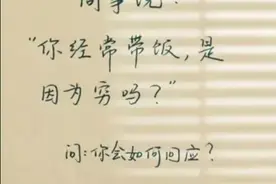 同事说：
“你经常带饭，是
因为穷吗？”
问：你会如何回应？